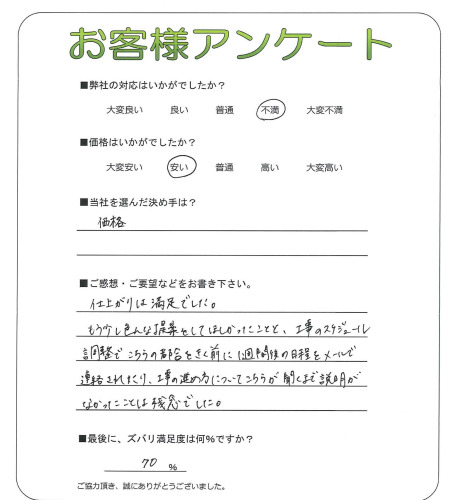 お客様アンケート
■弊社の対応はいかがでしたか？
大変良い 良い 普通 不満 大変不満
■価格はいかがでしたか？
大変安い 安い 普通 高い 大変高い
■当社を選んだ決め手は？
価格
■ご感想・ご要望などをお書き下さい。
仕上がりは満足でした。
もう少し色んな提案をしてほしかったことと、工事のスケジュール
調整でこちらの都合をきく前に1週間後の日程をメールで
連絡されたり、工事の進め方についてこちらが聞くまで説明が
なかったことは残念でした。
■最後に、ズバリ満足度は何%ですか？
70 %
ご協力頂き、誠にありがとうございました。